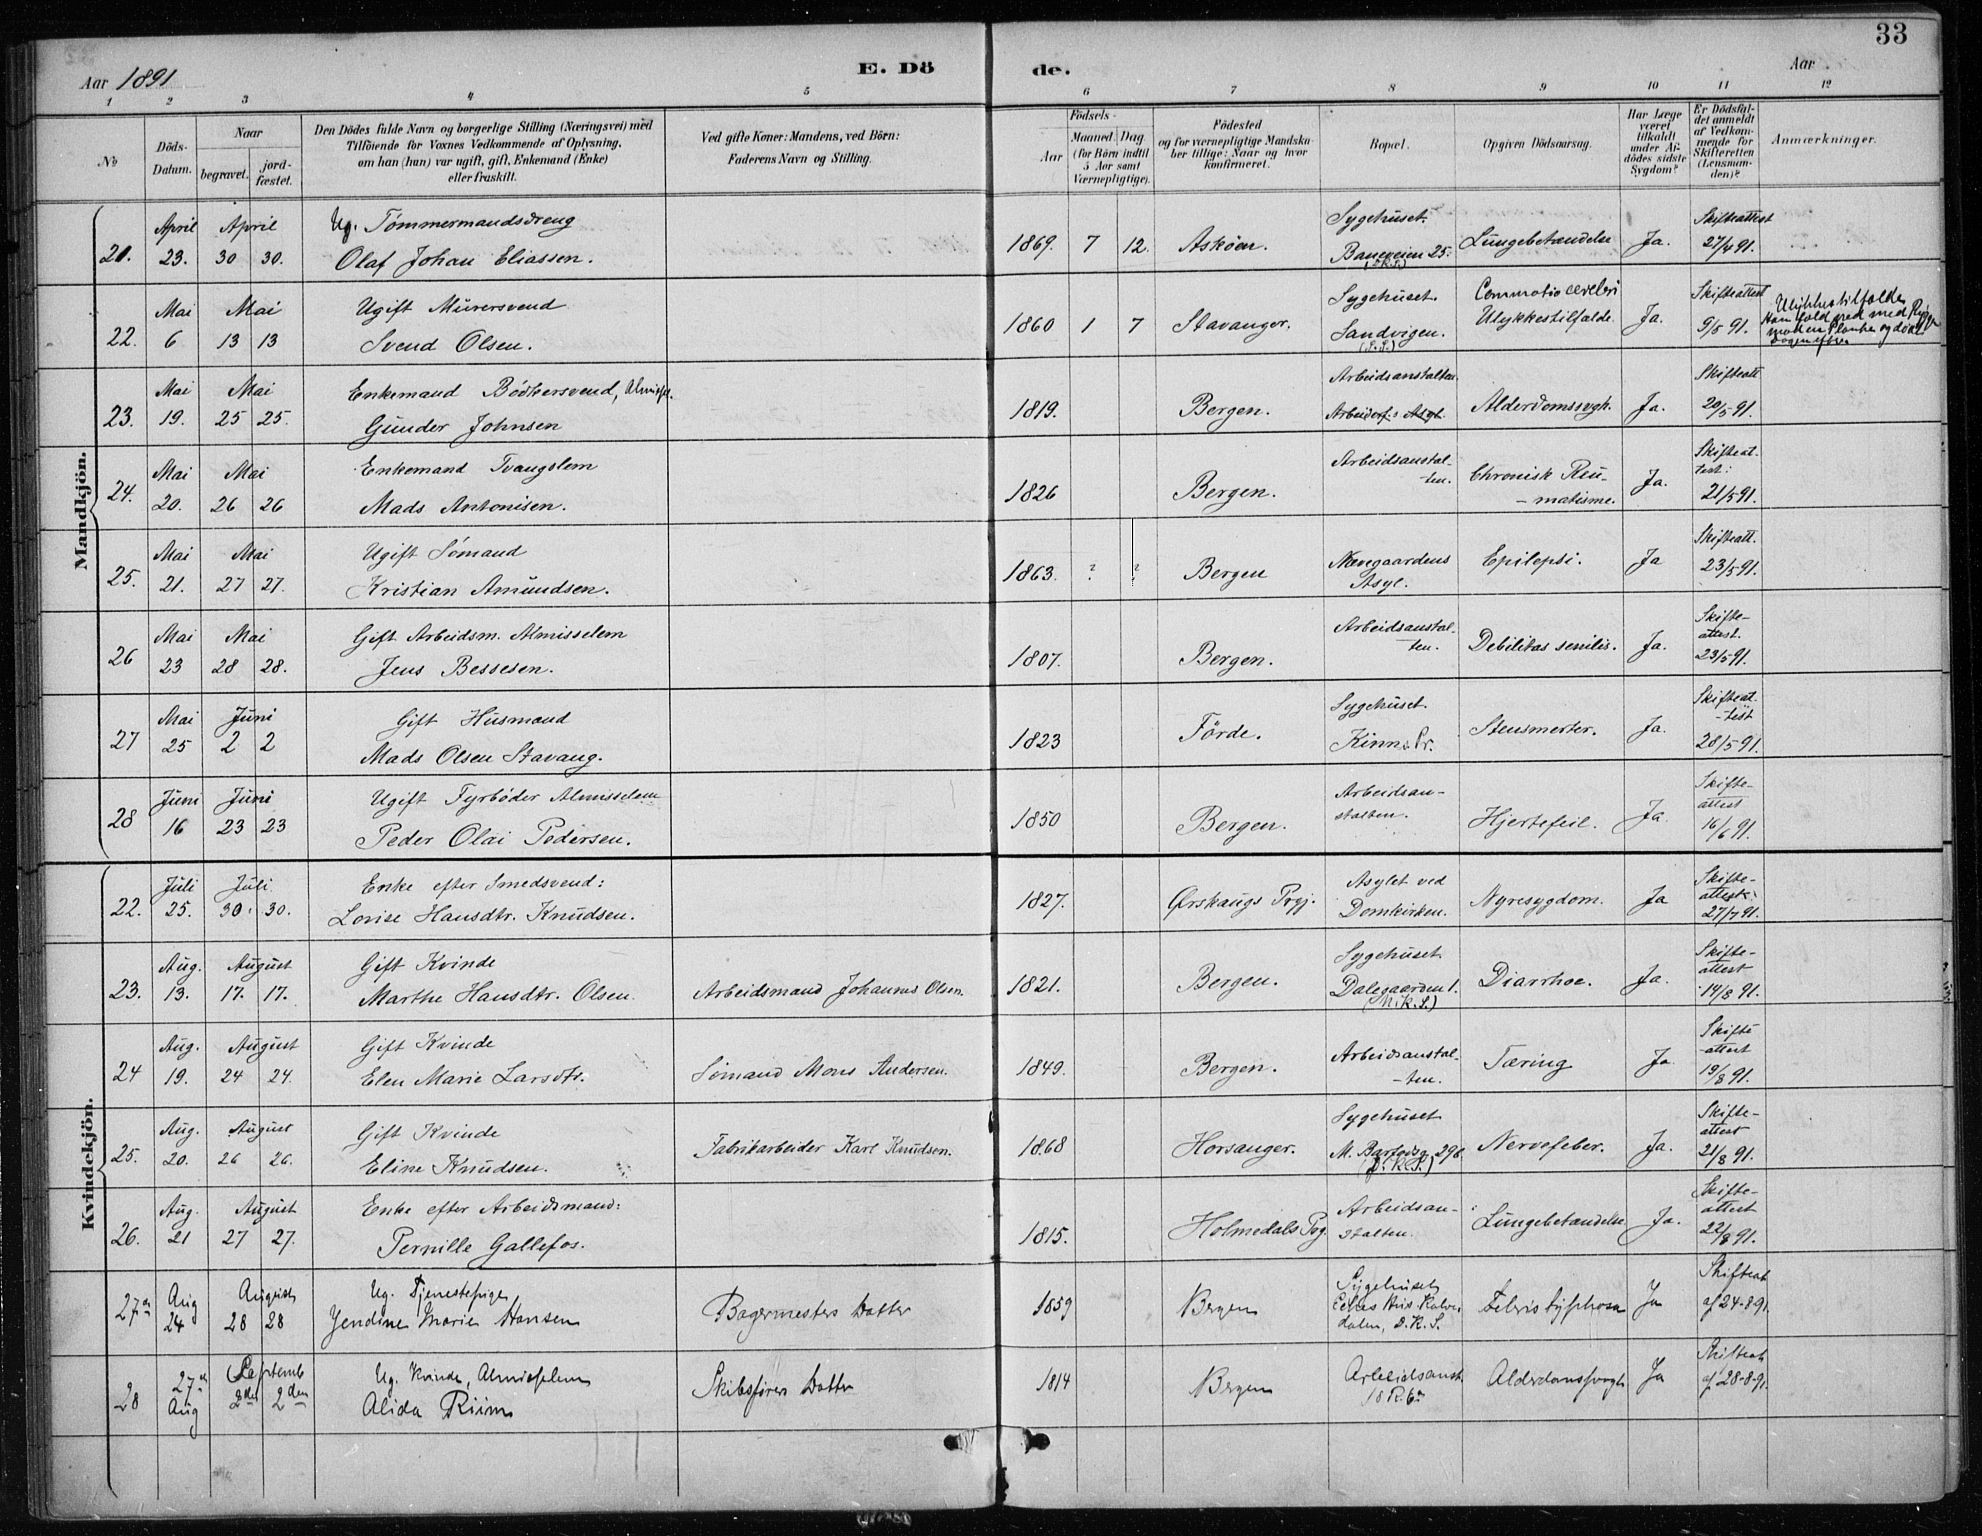 33
Aar 1891
E. Dö de.
Aar
1 2 3 4 5 6 7 8 9 10 11 12
No
Döds-Datum.
Naar
begravet.
jord-fæstet.
Den Dödes fulde Navn og borgerlige Stilling (Næringsvei) med
Tilföiende for Voxnes Vedkommende af Oplysning,
om han (hun) var ugift, gift, Enkemand (Enke)
eller fraskilt.
Ved gifte Koner: Mandens, ved Börn:
Faderens Navn og Stilling.
Födsels-
Aar
Maaned. Dag.
(for Börn indtil
5 Aar samt
Værnepligtige).
Födested
og for værnepligtige Mandska-
ber tillige: Naar og hvor
konfirmeret.
Bopæl.
Opgiven Dödsaarsag.
Har Læge
været
tilkaldt
under Af-
dödes sidste
Sygdom?
Er Dödsfal-
det anmeldt
af Vedkom-
mende for
Skifteretten
(Lensman-
den)?
Anmærkninger.
Mandkjön.
April April Ug. Tömmermandsdreng Sygehuset. Skifteattest
21. 23. 30 30. Olaf Johan Eliassen. 1869. 7 12. Askøen. Baneveien 25. Lungebetændelse Ja. 27/4 91.
Mai Mai Ugift Murersvend Sygehuset. Commotio cerebri Skifteattest Ulykkestilfælde
22. 6 13 13 Svend Olsen. 1860 1 7 Stavanger. Sandvigen. Ulykkestilfælde. Ja. 9/5 91. Han fold ned med Ryggen
(S. S.) mod en Planke og døde
Dagen efter
Mai Mai Enkemand Bödkersvend, Almisse. Arbeidsanstalten. Skifteatt
23. 19. 25 25. Gunder Johnsen 1819. Bergen. Arbeiderf. Asyl. Alderdomssvgh. Ja. 20/5 91.
Mai Mai Enkemand Tvangslem Arbeidsanstal- Chronisk Reu- Skifteat-
24. 20. 26 26 Mads Antonisen. 1826 Bergen. ten. -matisme. Ja. test: 21/5 91.
Mai Mai Ugift Sömand Skifteatt.
25. 21. 27 27. Kristian Amundsen. 1863. ? ? Bergen Neevengaardens Asyl. Epilepsi. Ja 23/5 91.
Mai Mai Gift Arbeidsm. Almisselem Arbeidsanstal- Skifte-
26 23 28 28. Jens Bessesen. 1807. Bergen. ten. Debilitas senilis. Ja. attest. 23/5 91.
Mai Juni Gift Husmand Sygehuset. Skifteat-
27 25 2 2 Mads Olsen Stavang. 1823 Förde. Kinns Pr. Stensmerter. Ja. -test 28/5 91.
Juni Juni Ugift Fyrböder Almisselem Arbeidsan- Skifte-
28 16 23 23 Peder Olai Pedersen. 1850 Bergen. stalten. Hjertefeil. Ja. attest 16/6 91.
Kvindekjön.
Juli Juli Enke efter Smedsvend: Asylet ved Skifte-
22. 25. 30. 30. Lovise Hansdtr. Knudsen. 1827. Ørskaugs Prgj. Domkirken. Nyresygdom. Ja attest: 27/7 91.
Aug. August Gift Kvinde Sygehuset Skifte-
23. 13. 17. 17. Marthe Hansdtr. Olsen. Arbeidsmand Johannes Olsen. 1821. Bergen. Dalegaarden 1. Diarrhoe. Ja. attest 14/8 91.
(Nik. S.)
Aug. August Gift Kvinde Skifte-
24 19. 24 24. Elen Marie Larsdtr. Sömand Mons Andersen. 1849. Bergen. Arbeidsanstal- -ten. Tæring Ja. -attest 19/8 91.
Aug. August Gift Kvinde Sygehuset Skifte-
25. 20. 26 26. Eline Knudsen. Fabrikarbeider Karl Knudsen. 1868 Horsanger. M. Bartods 298. Nervefeber. Ja. attest 21/8 91.
(D. K. S.)
Aug. August Enke efter Arbeidsmand: Arbeidsan- Skifte-
26. 21 27 27. Pernille Gallefos. 1815. Holmedals Pgj. stalten. Lungebetændelse Ja. attest 22/8 91.
Aug August Ug. Tjenestepige Sygehuset Skifteat
27de 24 28 28 Jendine Marie Hansen Bagermesters Datter 1859 Bergen Kalve- dalen, D. K. S. Febris typhosa Ja af 24-8-91.
27de Septemb Ug. Kvinde, Almisselem Arbeidsanst Skifteat
28 Aug 2den 2den Alida Riim Skibsförers Datter 1814 Bergen 18 R. 6. Alderdomssvagh Ja af 28-8-91.